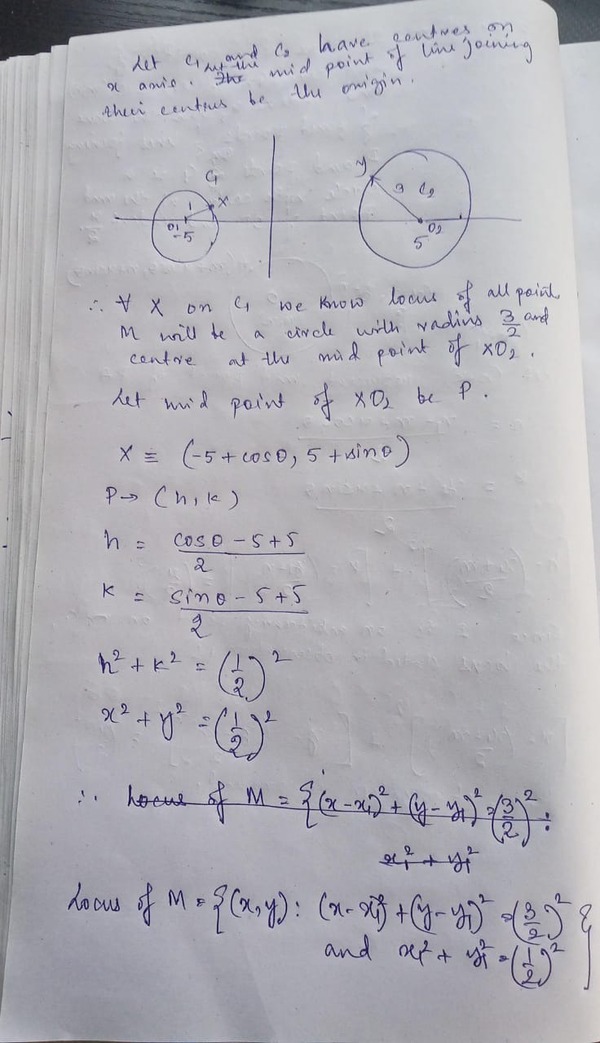 Let C₁ and C₂ have centres on
x axis. Let the mid point of line joining
their centres be the origin.
C₁
1
X
O₁
-5
Y
3
C₂
O₂
5
∴ ∀ X on C₁ we know locus of all point
M will be a circle with radius 3/2 and
centre at the mid point of XO₂.
Let mid point of XO₂ be P.
X ≡ (-5+cosθ, 5+sinθ)
P → (h, k)
h = (cosθ - 5 + 5)/2
k = (sinθ - 5 + 5)/2
h² + k² = (1/2)²
x² + y² = (1/2)²
∴ Locus of M = {(x-x₁)² + (y-y₁)² = (3/2)² :
x₁² + y₁²
Locus of M = {(x,y): (x-x₁)² + (y-y₁)² = (3/2)²
and x₁² + y₁² = (1/2)² }